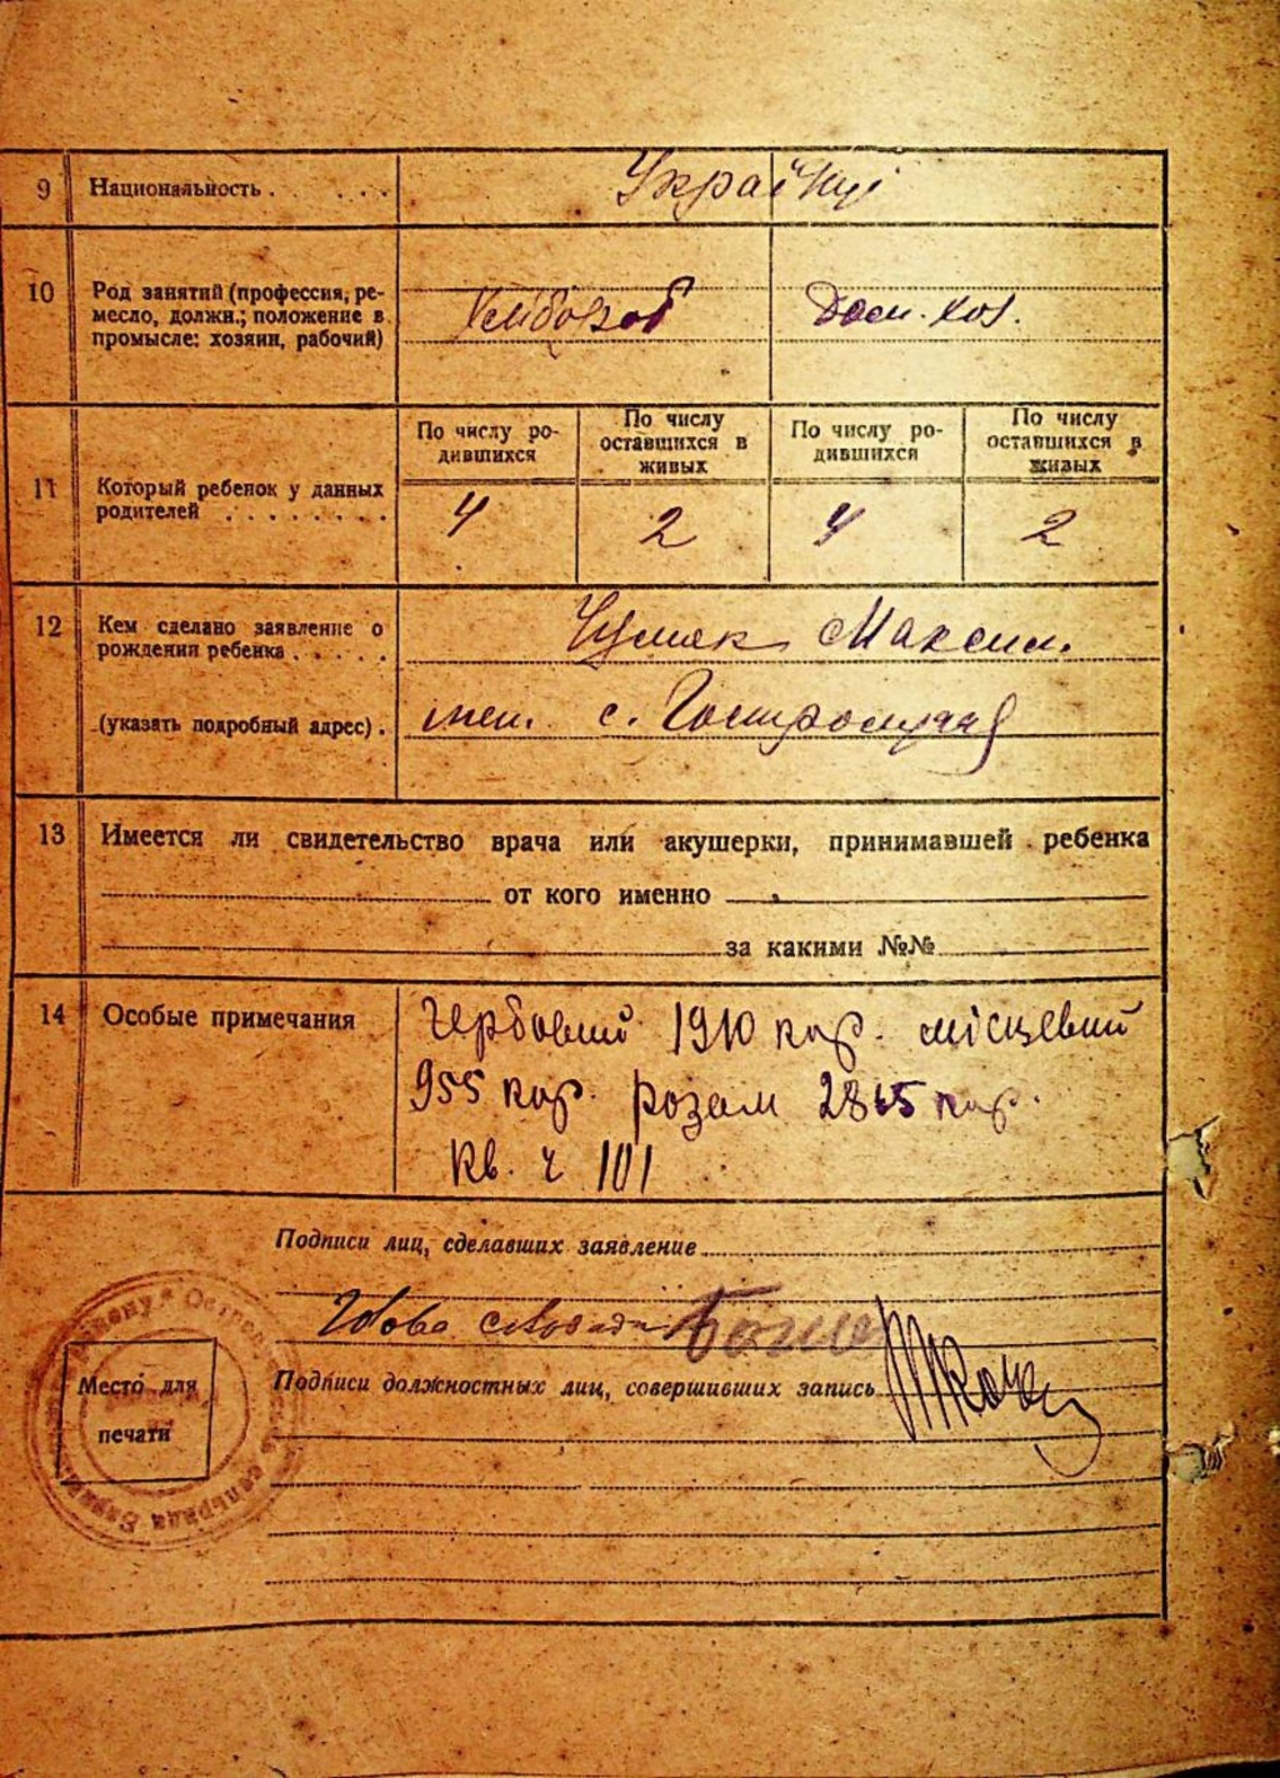 9 Национальность . . . . Українці
10 Род занятий (профессия, ре-
месло, должн.; положение в
промысле: хозяин, рабочий)
Хлібороб Дом. хоз.
11 Который ребенок у данных
родителей . . . . . . . .
По числу ро-
дившихся
По числу
оставшихся в
живых
По числу ро-
дившихся
По числу
оставшихся в
живых
4 2 4 2
12 Кем сделано заявление о
рождении ребенка . . . . .
Чумак Максим.
(указать подробный адрес) .
меш. с.
13 Имеется ли свидетельство врача или акушерки, принимавшей ребенка
от кого именно
за какими №№
14 Особые примечания
Гербовий 1910 кар. місцевий
955 кар. розам 2865 кар.
кв. ч 101
Подписи лиц, сделавших заявление
Голова
Подписи должностных лиц, совершивших запись
Место для
печати